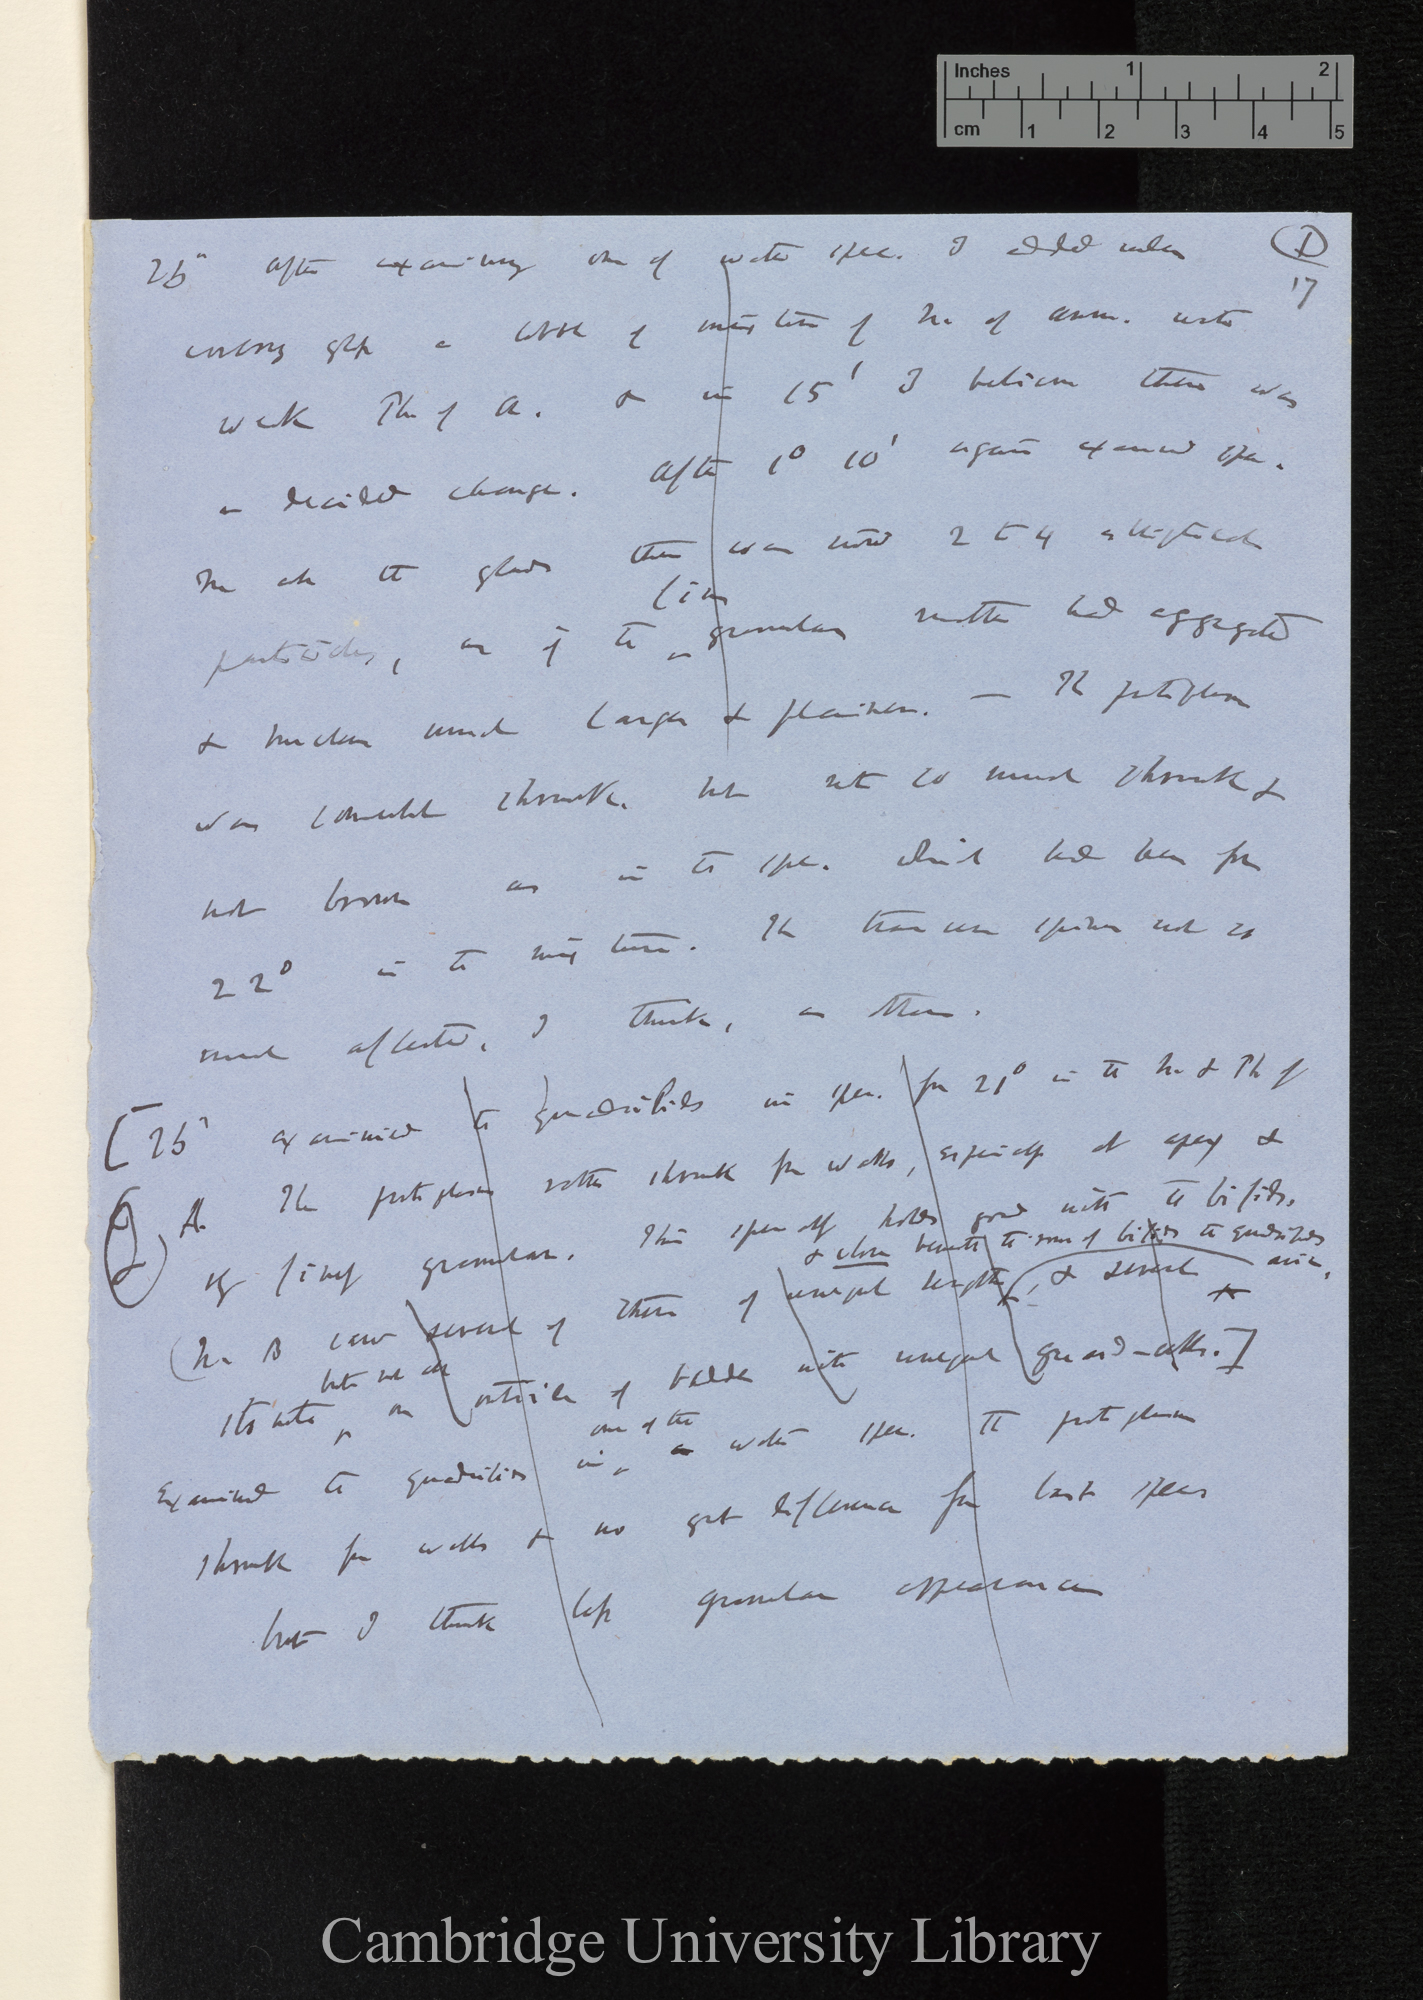 Inches 1 2
cm 1 2 3 4 5
(D)
17
25" after examining one of water spec. I added under
covering glass a little of mixture of N. of Amm. with
weak Ph of A. & in 15' I believe there was
a decided change. After 1° 10' again examined spec.
In all the glands there was now 2 to 4
particles, as if the granular matter had aggregated
fine
& nucleus much larger & plainer. — The protoplasm
was shrunk. but not so much shrunk &
not brown as in the spec. which had been for
22° in the mixture. The spines not so
much affected, I think, as them.
[25" examined the quadrifids in spec. for 21° in the N. & Ph of
A. The protoplasm rather shrunk from walls, especially at apex &
(Q)
finely granular. This holds good with the bifids.
& close beneath the rows of bifids the quadrifids
(N. B saw several of these of unequal length, & several
on outside of bladder with unequal guard-cells.]
but not all
one of the
Examined the quadrifids in water spec. the protoplasm
shrunk from walls & no great difference from last spec
but I think less granular appearance
Cambridge University Library